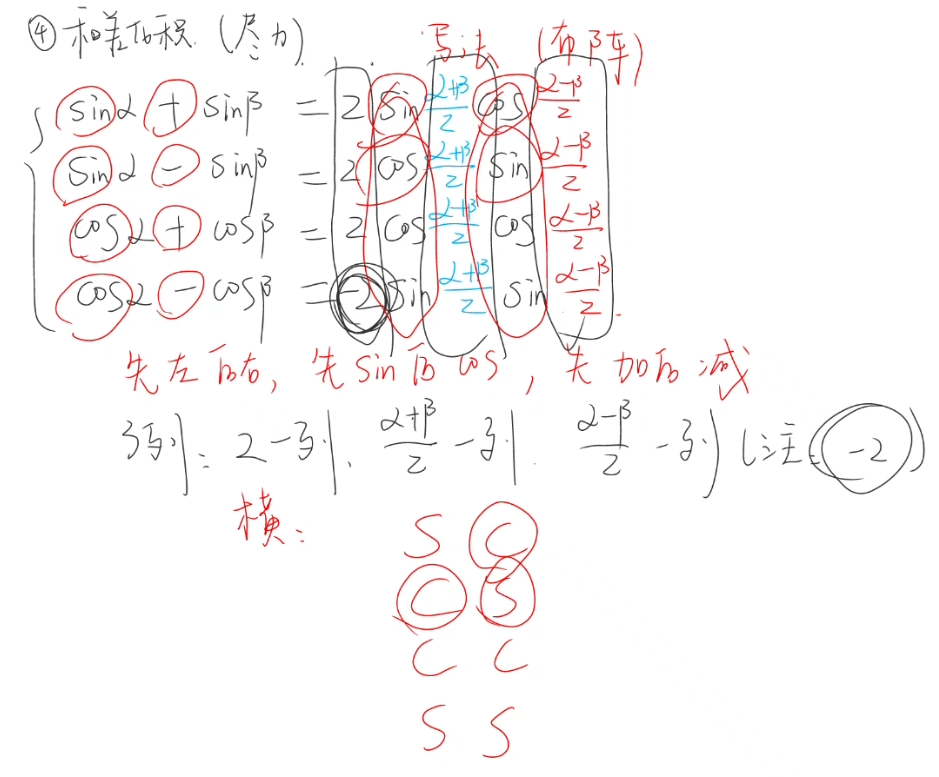 ④ 和差化积 (尽力) 写法 (布阵)
sinα + sinβ = 2 sin (α+β)/2 cos (α-β)/2
sinα - sinβ = 2 cos (α+β)/2 sin (α-β)/2
cosα + cosβ = 2 cos (α+β)/2 cos (α-β)/2
cosα - cosβ = -2 sin (α+β)/2 sin (α-β)/2
先左后右, 先 sin 后 cos, 先加后减
列: 2一列. (α+β)/2 一列. (α-β)/2 一列 (注: -2)
横:
S C
C S
C C
S S